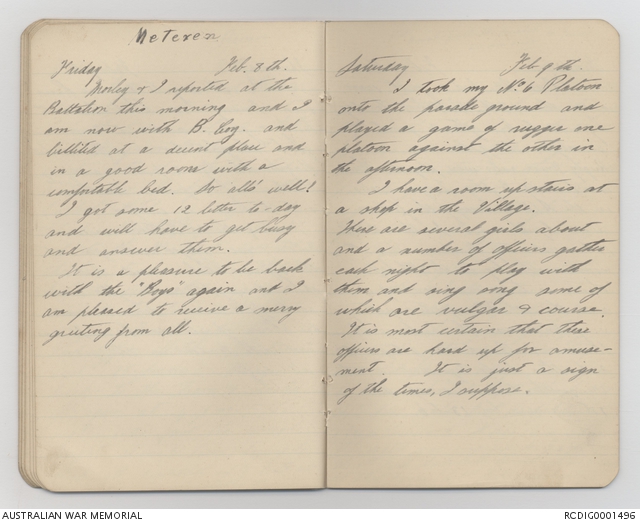 Meteren
Friday Feb. 8th.
Morley & I reported at the
Battalion this morning and I
am now with B. Coy. and
billited at a decent place and
in a good room with a
comfortable bed. So alls well!
I got some 12 letter to-day
and will have to get busy
and answer them.
It is a pleasure to be back
with the "Boys" again and I
am pleased to receive a merry
greeting from all.
Saturday Feb 9th.
I took my No 6 Platoon
onto the parade ground and
played a game of rugger one
platoon against the other in
the afternoon.
I have a room upstairs at
a shop in the Village.
There are several girls about
and a number of officers gather
each night to play with
them and sing song some of
which are vulgar & course.
It is most certain that these
officers are hard up for amuse-
ment. It is just a sign
of the times, I suppose.
AUSTRALIAN WAR MEMORIAL
RCDIG0001496